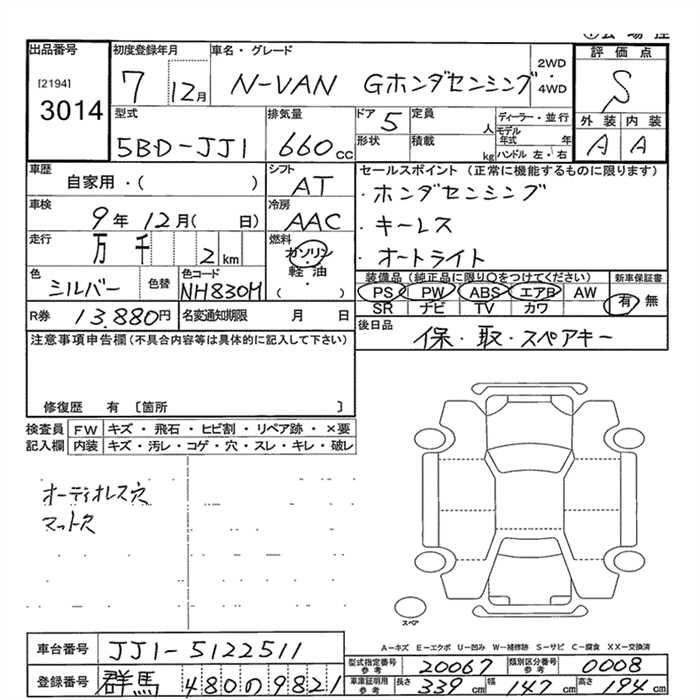 出品番号 初度登録年月 車名・グレード 2WD・4WD 評価点
[2194] 3014 7 12月 N-VAN Gホンダセンシング S
型式 排気量 ドア 5 定員 人 ディーラー・並行 外装 内装
5BD-JJ1 660cc 形状 積載 kg モデル年式 年 ハンドル 左・右 A A
車歴 自家用・( ) シフト AT セールスポイント (正常に機能するものに限ります)
・ホンダセンシング
車検 9年 12月( 日) 冷房 AAC
・キーレス
走行 万 千 2 km 燃料 ガソリン・軽油・( )
・オートライト
色 シルバー 色替 色コード NH830M
装備品 (純正品に限り○をつけてください) 新車保証書
PS PW ABS エアB AW 有・無
SR ナビ TV カワ
R券 13,880円 名変通知期限 月 日
後日品 保・取・スペアキー
注意事項申告欄(不具合内容等は具体的に記入して下さい)
修復歴 有 [箇所 ]
検査員 FW キズ・飛石・ヒビ割・リペア跡・×要
記入欄 内装 キズ・汚レ・コゲ・穴・スレ・キレ・破レ
オーディオレス穴
マット欠
スペア
A-キズ E-エクボ U-凹み W-補修跡 S-サビ C-腐食 XX-交換済
車台番号 JJ1-5122511
型式指定番号 参考 20067 類別区分番号 参考 0008
登録番号 群馬 480の9821
車庫証明用 参考 長さ 339cm 幅 147cm 高さ 194cm